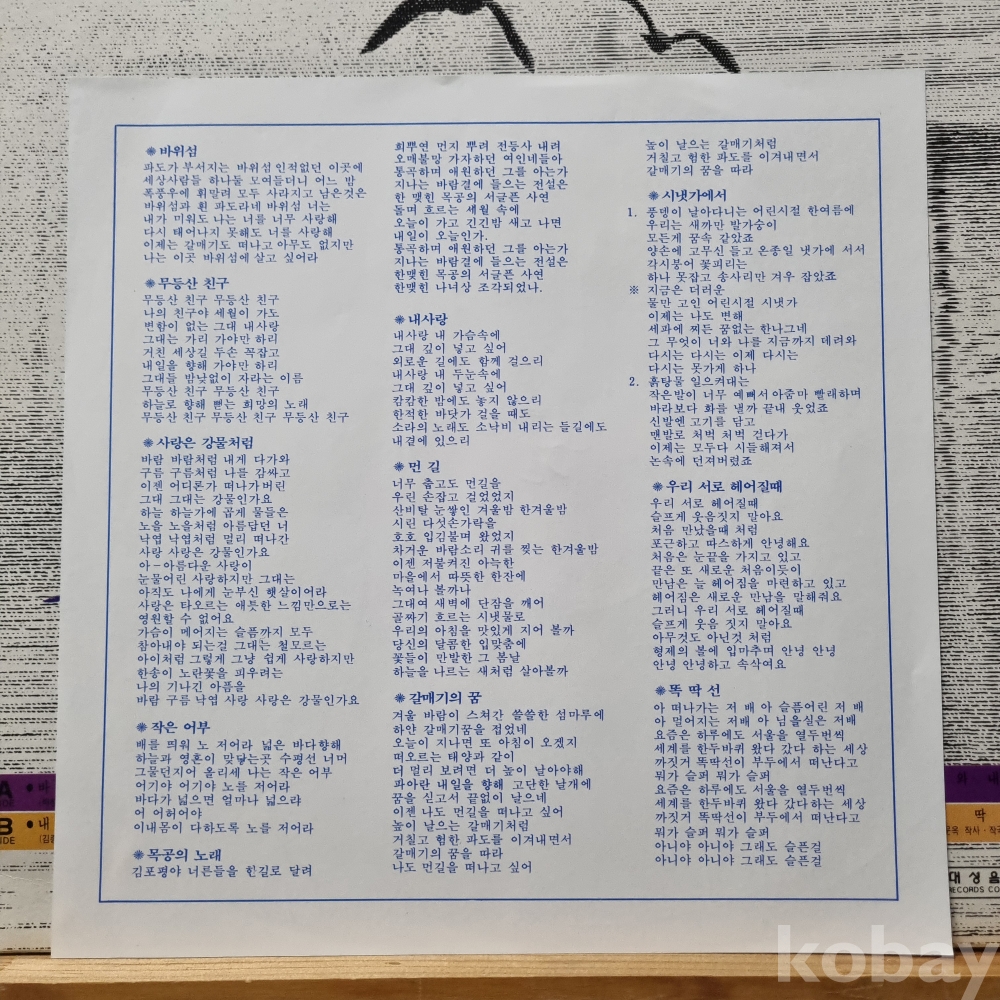 ❋ 바위섬
파도가 부서지는 바위섬 인적없던 이곳에
세상사람들 하나둘 모여들더니 어느 밤
폭풍우에 휘말려 모두 사라지고 남은것은
바위섬과 흰 파도라네 바위섬 너는
내가 미워도 나는 너를 너무 사랑해
다시 태어나지 못해도 너를 사랑해
이제는 갈매기도 떠나고 아무도 없지만
나는 이곳 바위섬에 살고 싶어라
❋ 무등산 친구
무등산 친구 무등산 친구
나의 친구야 세월이 가도
변함이 없는 그대 내사랑
그대는 가리 가야만 하리
거친 세상길 두손 꼭잡고
내일을 향해 가야만 하리
그대들 밤낮없이 자라는 이름
무등산 친구 무등산 친구
하늘로 향해 뻗는 희망의 노래
무등산 친구 무등산 친구 무등산 친구
❋ 사랑은 강물처럼
바람 바람처럼 내게 다가와
구름 구름처럼 나를 감싸고
이젠 어디론가 떠나가버린
그대 그대는 강물인가요
하늘 하늘가에 곱게 물들은
노을 노을처럼 아름답던 너
낙엽 낙엽처럼 멀리 떠나간
사랑 사랑은 강물인가요
아-아름다운 사랑이
눈물어린 사랑하지만 그대는
아직도 나에게 눈부신 햇살이어라
사랑은 타오르는 애틋한 느낌만으로는
영원할 수 없어요
가슴이 메어지는 슬픔까지 모두
참아내야 되는걸 그대는 철모르는
아이처럼 그렇게 그냥 쉽게 사랑하지만
한송이 노란꽃을 피우려는
나의 기나긴 아픔을
바람 구름 낙엽 사랑 사랑은 강물인가요
❋ 작은 어부
배를 띄워 노 저어라 넓은 바다향해
하늘과 영혼이 맞닿는곳 수평선 너머
그물던지어 올리세 나는 작은 어부
어기야 어기야 노를 저어라
바다가 넓으면 얼마나 넓으랴
어 어허어야
이내몸이 다하도록 노를 저어라
❋ 목공의 노래
김포평야 너른들을 한길로 달려
희뿌연 먼지 뿌려 전등사 내려
오매불망 가자하던 여인네들아
통곡하며 애원하던 그를 아는가
지나는 바람결에 들으는 전설은
한 맺힌 목공의 서글픈 사연
돌며 흐르는 세월 속에
오늘이 가고 긴긴밤 새고 나면
내일이 오늘인가.
통곡하며 애원하던 그를 아는가
지나는 바람결에 들으는 전설은
한맺힌 목공의 서글픈 사연
한맺힌 나녀상 조각되었나.
❋ 내사랑
내사랑 내 가슴속에
그대 깊이 넣고 싶어
외로운 길에도 함께 걸으리
내사랑 내 두눈속에
그대 깊이 넣고 싶어
캄캄한 밤에도 놓지 않으리
한적한 바닷가 걸을 때도
소라의 노래도 소낙비 내리는 들길에도
내곁에 있으리
❋ 먼 길
너무 춥고도 먼길을
우린 손잡고 걸었었지
산비탈 눈쌓인 겨울밤 한겨울밤
시린 다섯손가락을
호호 입김불며 왔었지
차거운 바람소리 귀를 찢는 한겨울밤
이젠 저물켜진 아늑한
마을에서 따뜻한 한잔에
녹여나 볼까나
그대여 새벽에 단잠을 깨어
골짜기 흐르는 시냇물로
우리의 아침을 맛있게 지어 볼까
당신의 달콤한 입맞춤에
꽃들이 만발한 그 봄날
하늘을 나르는 새처럼 살아볼까
❋ 갈매기의 꿈
겨울 바람이 스쳐간 쓸쓸한 섬마루에
하얀 갈매기꿈을 접었네
오늘이 지나면 또 아침이 오겠지
떠오르는 태양과 같이
더 멀리 보려면 더 높이 날아야해
파아란 내일을 향해 고단한 날개에
꿈을 싣고서 끝없이 날으네
이젠 나도 먼길을 떠나고 싶어
높이 날으는 갈매기처럼
거칠고 험한 파도를 이겨내면서
갈매기의 꿈을 따라
나도 먼길을 떠나고 싶어
높이 날으는 갈매기처럼
거칠고 험한 파도를 이겨내면서
갈매기의 꿈을 따라
❋ 시냇가에서
1. 풍뎅이 날아다니는 어린시절 한여름에
우리는 새까만 발가숭이
모든게 꿈속 같았죠
양손에 고무신 들고 온종일 냇가에 서서
각시붕어 꽃피리는
하나 못잡고 송사리만 겨우 잡았죠
※ 지금은 더러운
물만 고인 어린시절 시냇가
이제는 나도 변해
세파에 찌든 꿈없는 한나그네
그 무엇이 너와 나를 지금까지 데려와
다시는 다시는 이제 다시는
다시는 못가게 하나
2. 흙탕물 일으켜대는
작은발이 너무 예뻐서 아줌마 빨래하며
바라보다 화를 낼까 끝내 웃었죠
신발엔 고기를 담고
맨발로 처벅 처벅 걷다가
이제는 모두다 시들해져서
논속에 던져버렸죠
❋ 우리 서로 헤어질때
우리 서로 헤어질때
슬프게 웃음짓지 말아요
처음 만났을때 처럼
포근하고 따스하게 안녕해요
처음은 눈끝을 가지고 있고
끝은 또 새로운 처음이듯이
만남은 늘 헤어짐을 마련하고 있고
헤어짐은 새로운 만남을 말해줘요
그러니 우리 서로 헤어질때
슬프게 웃음 짓지 말아요
아무것도 아닌것 처럼
형제의 볼에 입마추며 안녕 안녕
안녕 안녕하고 속삭여요
❋ 똑 딱 선
아 떠나가는 저 배 아 슬픔어린 저 배
아 멀어지는 저배 아 님을실은 저배
요즘은 하루에도 서울을 열두번씩
세계를 한두바퀴 왔다 갔다 하는 세상
까짓거 똑딱선이 부두에서 떠난다고
뭐가 슬퍼 뭐가 슬퍼
요즘은 하루에도 서울을 열두번씩
세계를 한두바퀴 왔다 갔다하는 세상
까짓거 똑딱선이 부두에서 떠난다고
뭐가 슬퍼 뭐가 슬퍼
아니야 아니야 그래도 슬픈걸
아니야 아니야 그래도 슬픈걸
A
B
SIDE
내
딱
작사
대 성 음
RECORDS CO
kobay